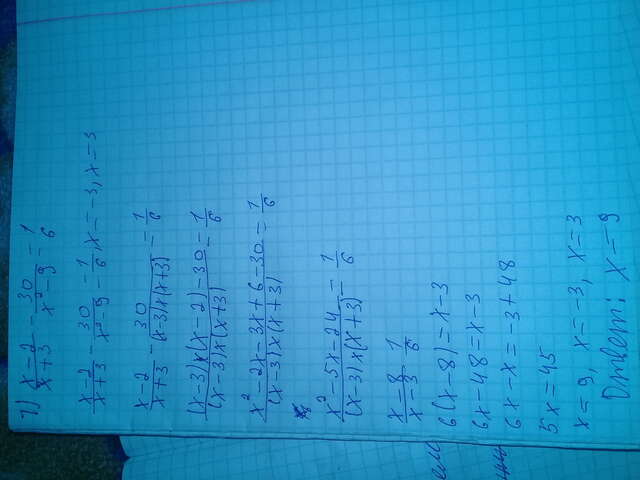 7) (x-2)/(x+3) - 30/(x²-9) = 1/6
(x-2)/(x+3) - 30/(x²-9) = 1/6, x = -3, x = 3
(x-2)/(x+3) - 30/((x-3)x(x+3)) = 1/6
((x-3)x(x-2)-30)/((x-3)x(x+3)) = 1/6
(x²-2x-3x+6-30)/((x-3)x(x+3)) = 1/6
(x²-5x-24)/((x-3)x(x+3)) = 1/6
(x-8)/(x-3) 1/6
6(x-8)=x-3
6x-48=x-3
6x-x=-3+48
5x=45
x=9, x=-3, x=3
Ответ: x=9